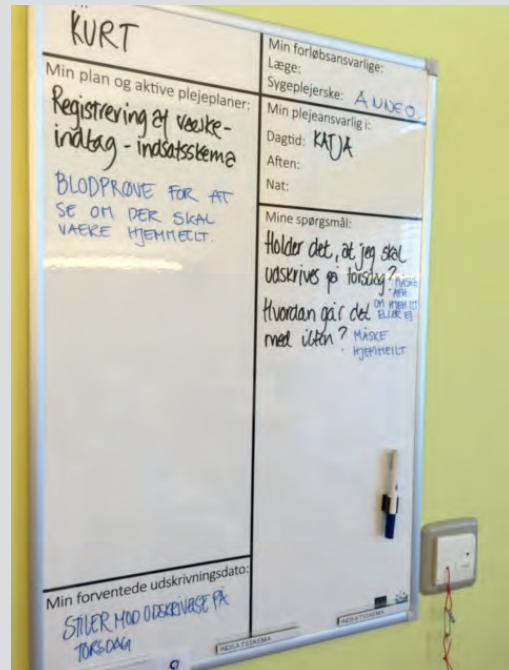 KURT
Min plan og aktive plejeplaner:
Registrering af væske-
indtag - indsatsskema
BLODPRØVE FOR AT
SE OM DER SKAL
VÆRE HJEMMEILT.
Min forventede udskrivningsdato:
STILER MOD UDSKRIVELSE PÅ
TORSDAG
Min forløbsansvarlige:
Læge:
Sygeplejerske: ANNE O.
Min plejeansvarlig i:
Dagtid: KATJA
Aften:
Nat:
Mine spørgsmål:
Holder det, at jeg skal
udskrives på torsdag? MÅSKE
OM HJEMMEILT
Hvordan går det ELLER EJ
med ilten? MÅSKE
HJEMMEILT
INDSATSSKEMA
INDSATSSKEMA